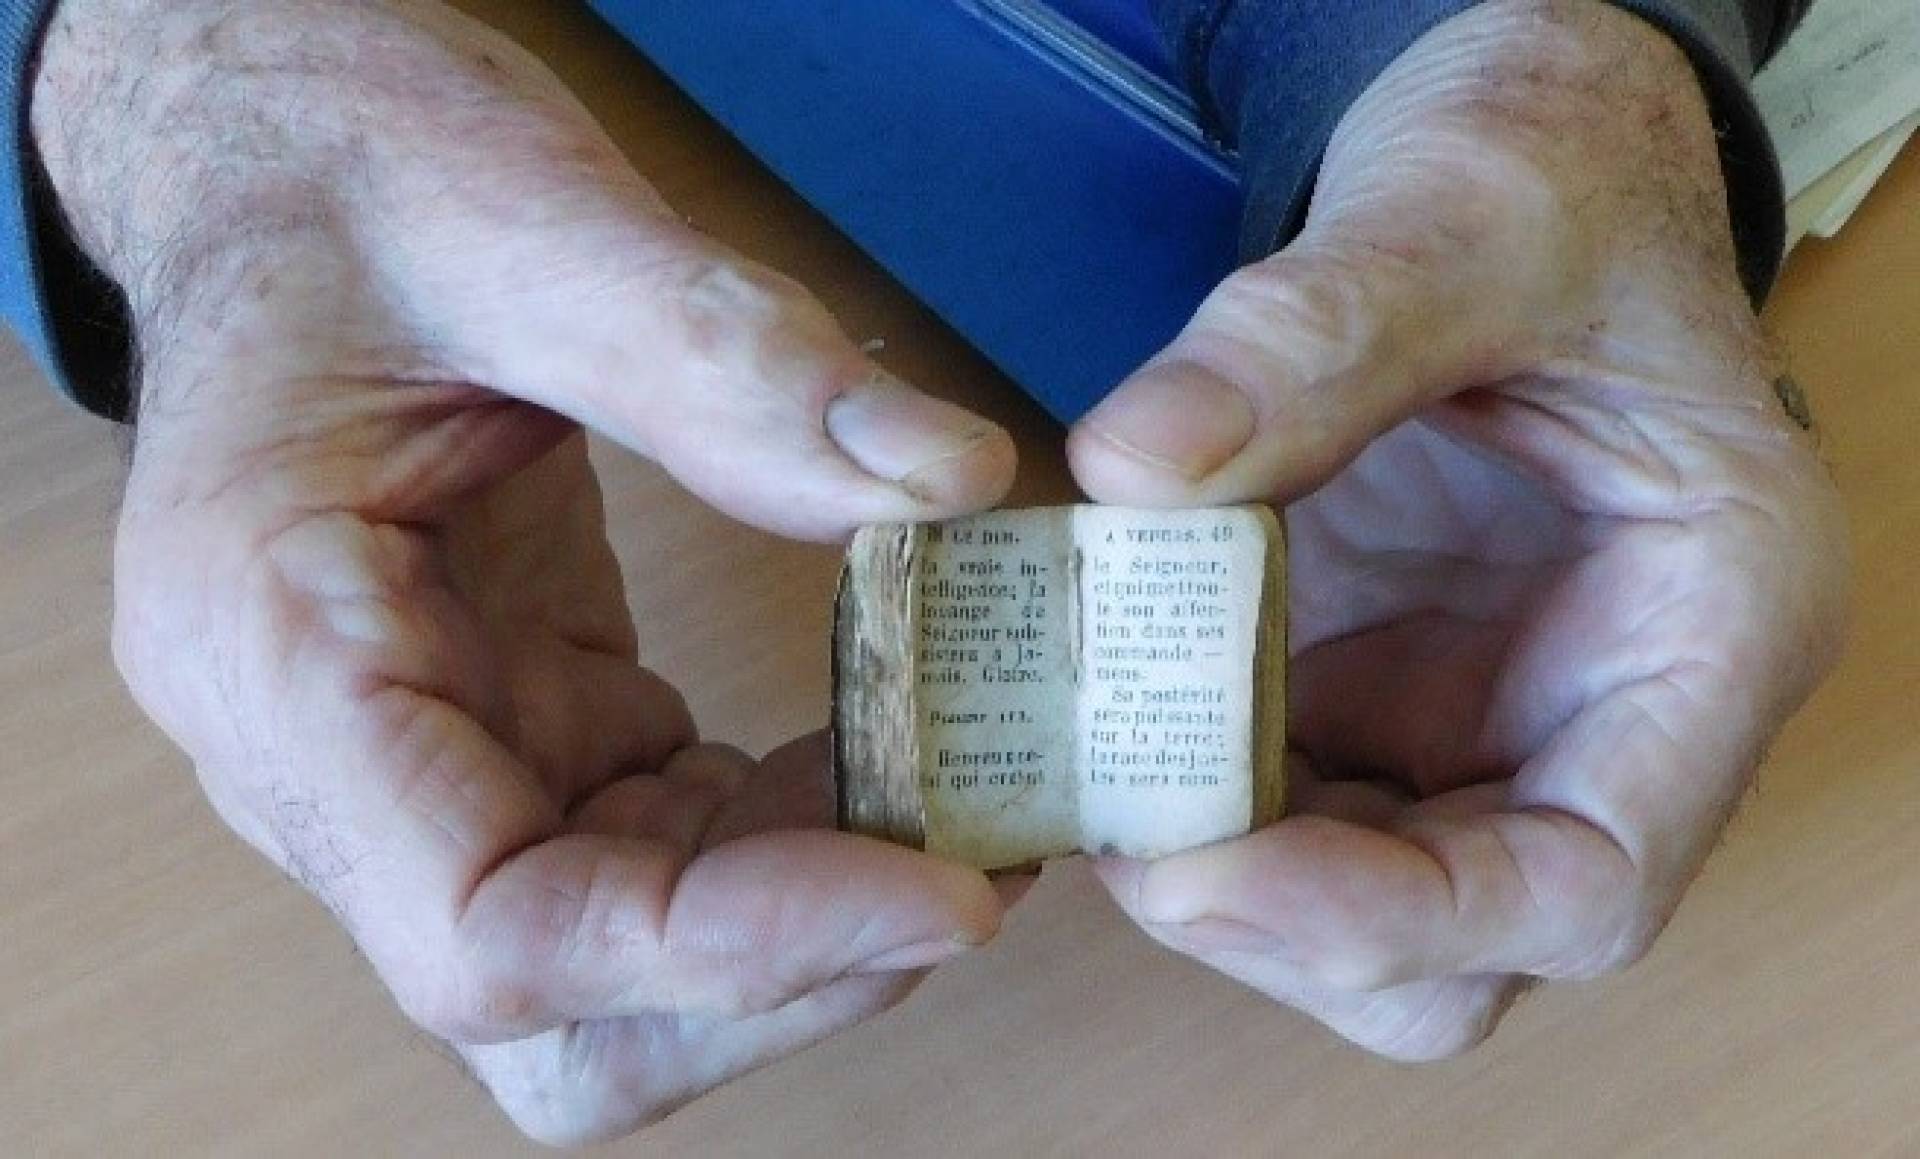 LE DIM.
la vraie in-
telligence; la
louange du
Seigneur sub-
sistera à ja-
mais. Gloire.
Psaume 111.
Heureux ce-
lui qui craint
A VEPRES. 49
le Seigneur,
et qui met tou-
te son affec-
tion dans ses
commande —
mens.
Sa postérité
sera puissante
sur la terre;
la race des jus-
tes sera com-